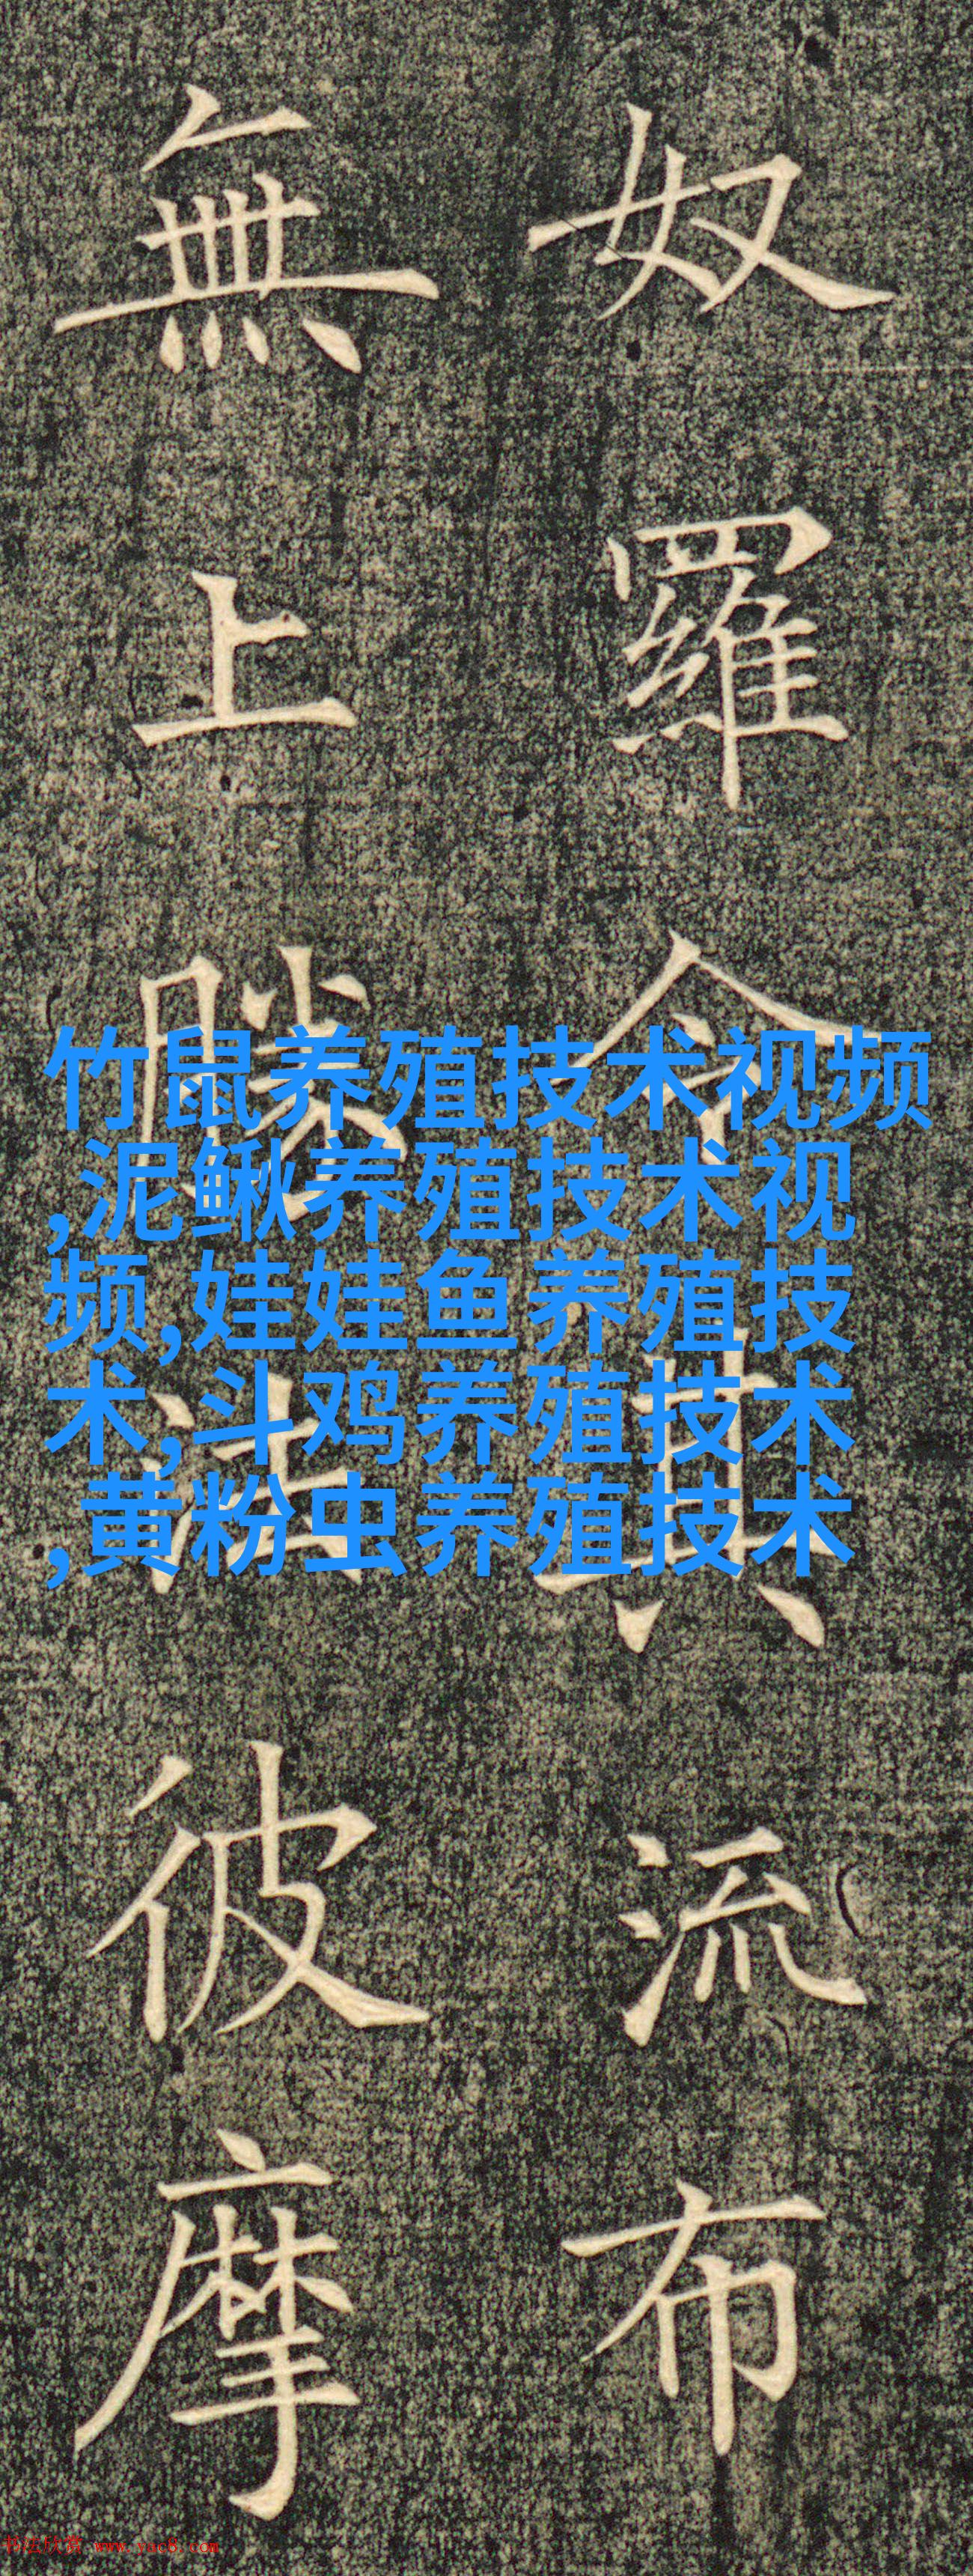 奴羅令其流布
無上勝法彼摩
竹鼠养殖技术视频
,泥鳅养殖技术视
频,娃娃鱼养殖技
术,斗鸡养殖技术
,黄粉虫养殖技术
书法欣赏 www.yac8.com